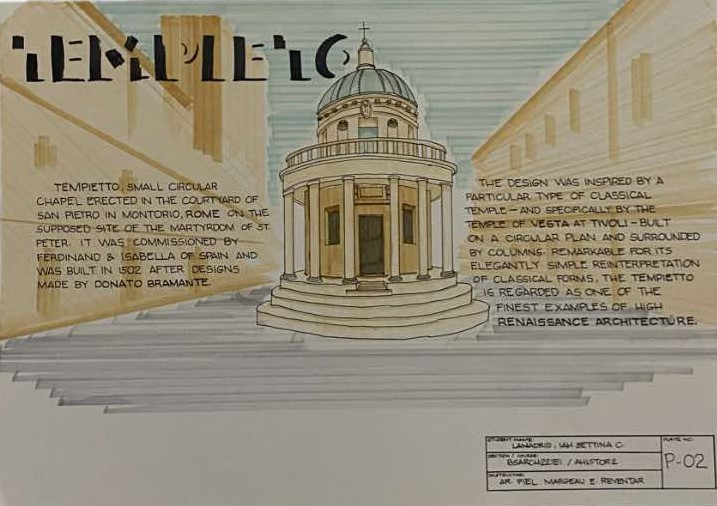 TEMPIETO
TEMPIETTO, SMALL CIRCULAR
CHAPEL ERECTED IN THE COURTYARD OF
SAN PIETRO IN MONTORIO, ROME ON THE
SUPPOSED SITE OF THE MARTYRDOM OF ST.
PETER. IT WAS COMMISSIONED BY
FERDINAND & ISABELLA OF SPAIN AND
WAS BUILT IN 1502 AFTER DESIGNS
MADE BY DONATO BRAMANTE.
THE DESIGN WAS INSPIRED BY A
PARTICULAR TYPE OF CLASSICAL
TEMPLE - AND SPECIFICALLY BY THE
TEMPLE OF VESTA AT TIVOLI - BUILT
ON A CIRCULAR PLAN AND SURROUNDED
BY COLUMNS. REMARKABLE FOR ITS
ELEGANTLY SIMPLE REINTERPRETATION
OF CLASSICAL FORMS, THE TEMPIETO
IS REGARDED AS ONE OF THE
FINEST EXAMPLES OF HIGH
RENAISSANCE ARCHITECTURE.
STUDENT NAME:
LAMADRID, IAH BETTINA C.
SECTION / COURSE:
/ AHISTOR2
INSTRUCTOR:
AR. PIEL MARGEAU E. REVENTAR
PLATE NO.
P-02